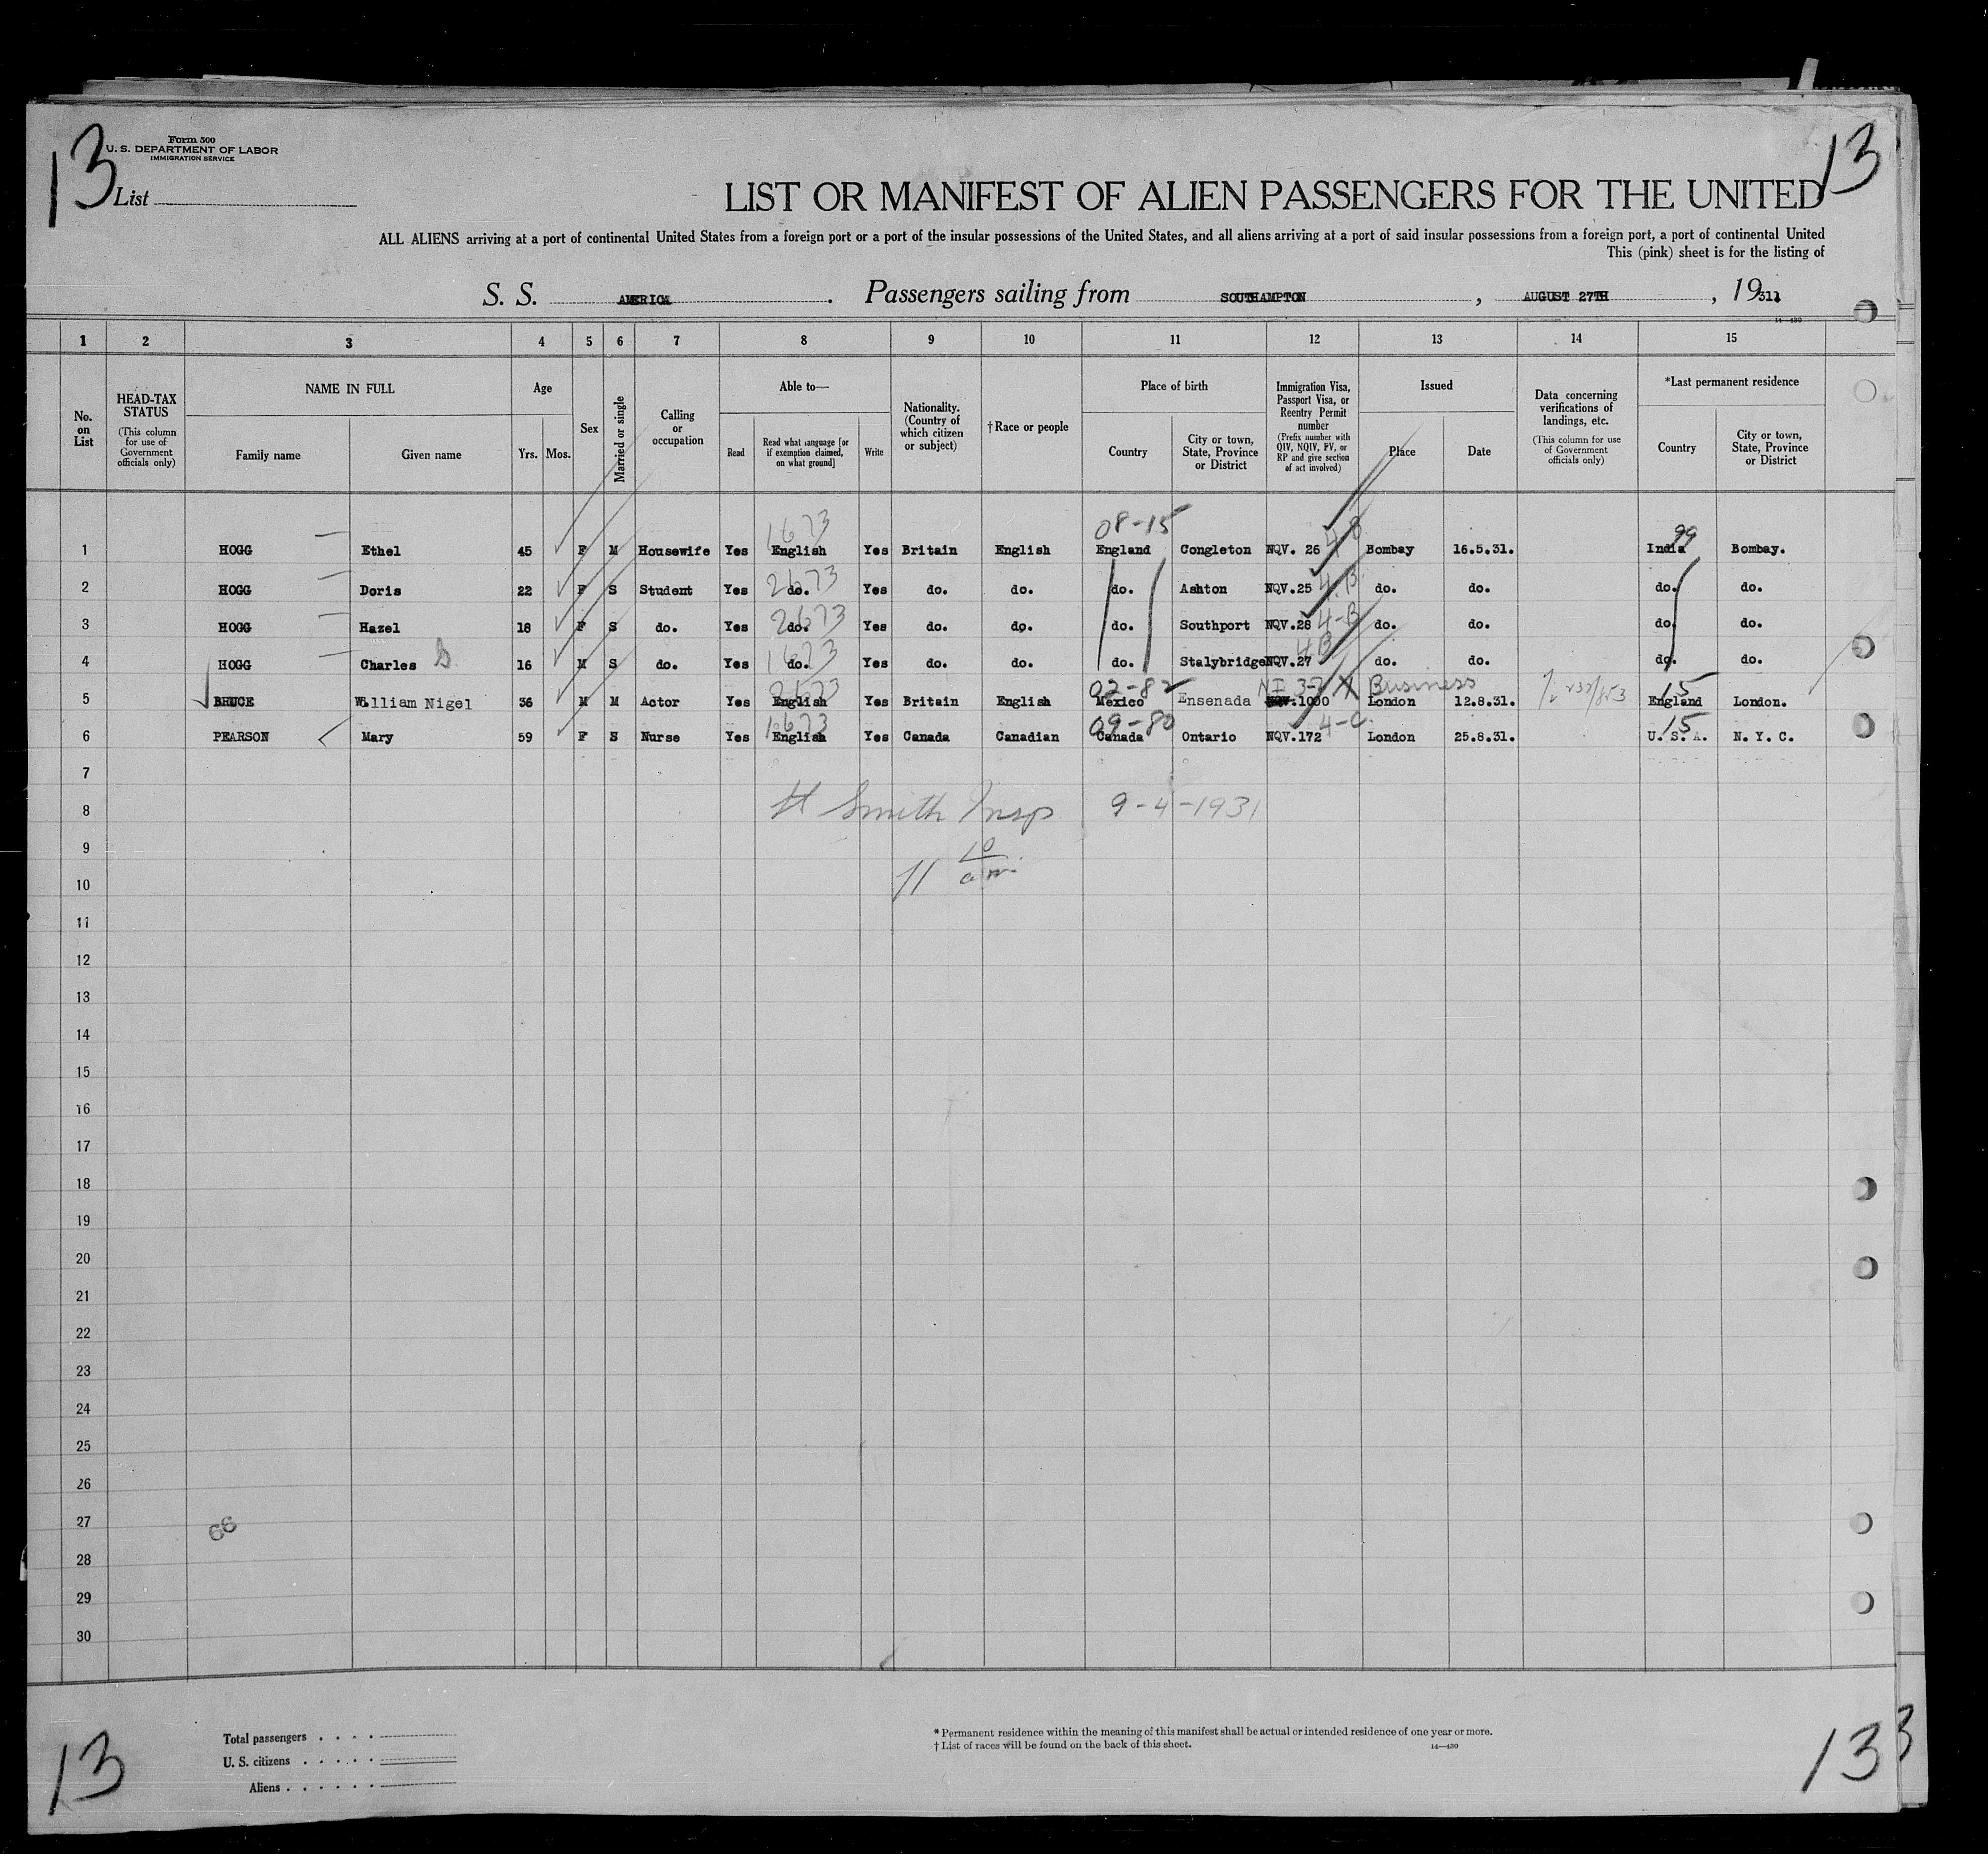 13
Form 500
U. S. DEPARTMENT OF LABOR
IMMIGRATION SERVICE
List
13
LIST OR MANIFEST OF ALIEN PASSENGERS FOR THE UNITED
ALL ALIENS arriving at a port of continental United States from a foreign port or a port of the insular possessions of the United States, and all aliens arriving at a port of said insular possessions from a foreign port, a port of continental United
This (pink) sheet is for the listing of
S. S. AMERICA. Passengers sailing from SOUTHAMPTON, AUGUST 27TH, 1931
14—430
1 2 3 4 5 6 7 8 9 10 11 12 13 14 15
No. on List
HEAD-TAX STATUS
(This column for use of Government officials only)
NAME IN FULL
Family name
Given name
Age
Yrs. Mos.
Sex
Married or single
Calling or occupation
Able to—
Read
Read what language [or if exemption claimed, on what ground]
Write
Nationality. (Country of which citizen or subject)
† Race or people
Place of birth
Country
City or town, State, Province or District
Immigration Visa, Passport Visa, or Reentry Permit number
(Prefix number with QIV, NQIV, PV, or RP and give section of act involved)
Issued
Place
Date
Data concerning verifications of landings, etc.
(This column for use of Government officials only)
*Last permanent residence
Country
City or town, State, Province or District
1673 08-15 4B 99
1 HOGG Ethel 45 F M Housewife Yes English Yes Britain English England Congleton NQV. 26 Bombay 16.5.31. India Bombay.
2 HOGG Doris 22 F S Student Yes do. 2673 Yes do. do. do. Ashton NQV.25 4.B do. do. do. do.
3 HOGG Hazel 18 F S do. Yes do. 2673 Yes do. do. do. Southport NQV.28 4-B do. do. do. do.
4 HOGG Charles G 16 M S do. Yes do. 1673 Yes do. do. do. Stalybridge NQV.27 4B do. do. do. do.
2673 02-82 NI 3-2 Business 15
5 BRUCE William Nigel 36 M M Actor Yes English Yes Britain English Mexico Ensenada NQV.1000 London 12.8.31. England London.
1673 09-80 4-C 15
6 PEARSON Mary 59 F S Nurse Yes English Yes Canada Canadian Canada Ontario NQV.172 London 25.8.31. U. S. A. N. Y. C.
7
8 H Smith Insp 9-4-1931
9
11 10 am.
10
11
12
13
14
15
16
17
18
19
20
21
22
23
24
25
26
27
66
28
29
30
Total passengers
U. S. citizens
Aliens
* Permanent residence within the meaning of this manifest shall be actual or intended residence of one year or more.
† List of races will be found on the back of this sheet.
14—430
13
13
3